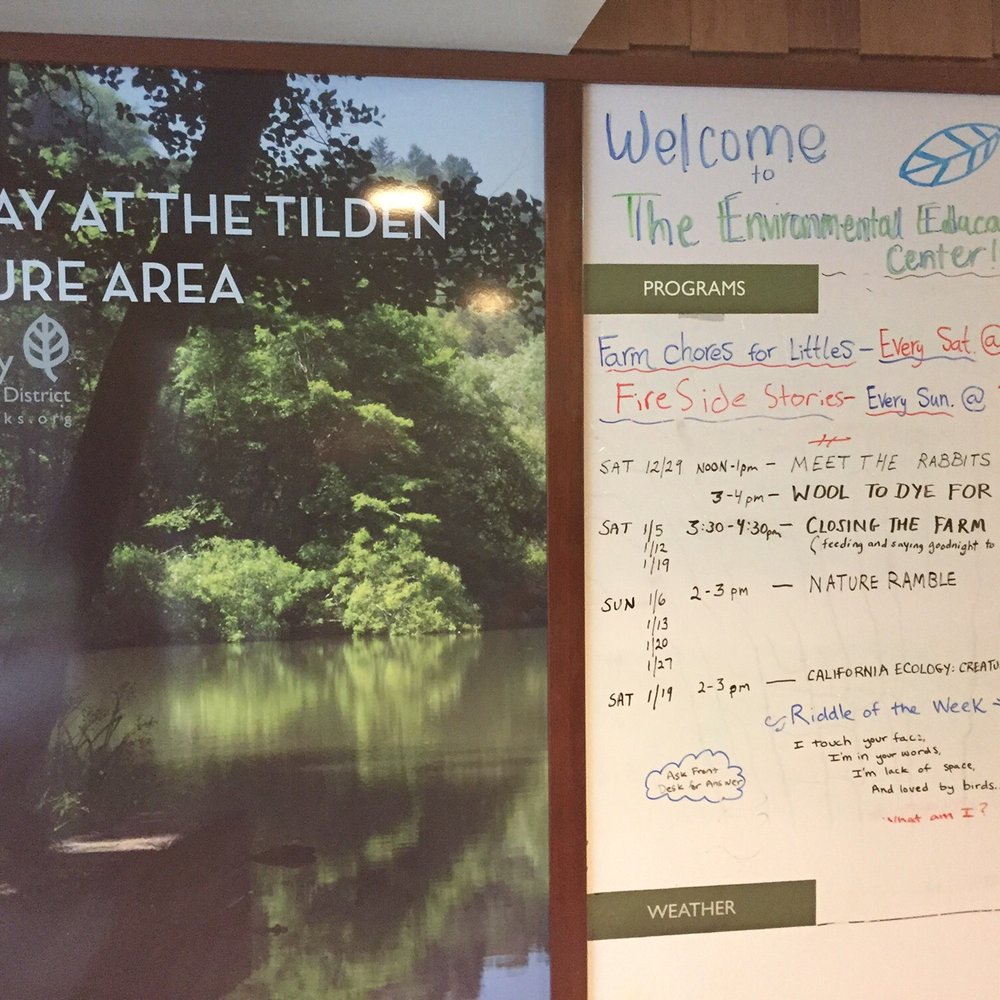 AY AT THE TILDEN
URE AREA
y
District
ks.org
Welcome
to
The Environmental Educa
Center!
PROGRAMS
Farm Chores for Littles - Every Sat. @
FireSide Stories - Every Sun. @
SAT 12/29 NOON-1pm - MEET THE RABBITS
3-4pm - WOOL TO DYE FOR
SAT 1/5 3:30-4:30pm - CLOSING THE FARM
1/12 (feeding and saying goodnight to
1/19
SUN 1/6 2-3 pm - NATURE RAMBLE
1/13
1/20
1/27
SAT 1/19 2-3 pm - CALIFORNIA ECOLOGY: CREATU
Riddle of the Week
I touch your face,
I'm in your words,
I'm lack of space,
And loved by birds...
What am I?
Ask Front
Desk for Answer
WEATHER